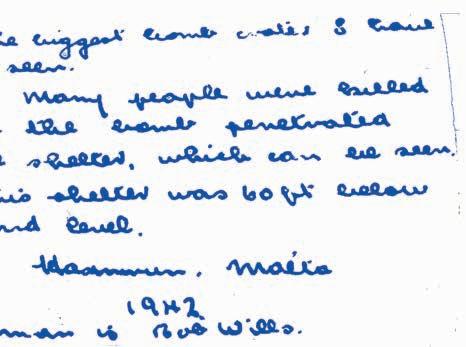 he biggest bomb crater I have
seen.
Many people were killed
the bomb penetrated
e shelter, which can be seen.
his shelter was 60 ft below
und level.
Hammrun. Malta
1942
man is Bob Wills.